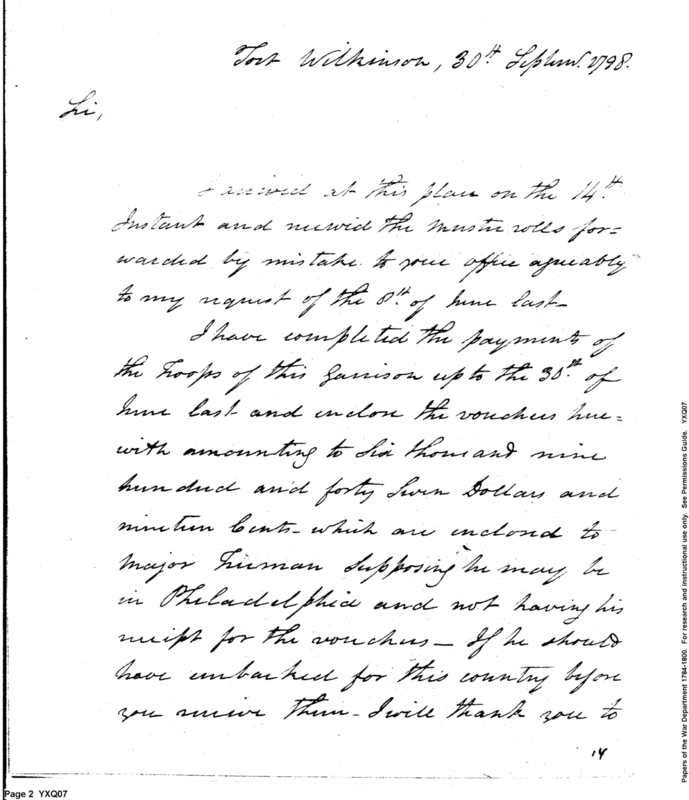 Fort Wilkinson, 30th Septem. 1798.
Sir,
I arrived at this place on the 14th
Instant and received the muster rolls for=
warded by mistake to your office agreeably
to my request of the 8th of June last-
I have completed the payments of
the Troops of this Garrison up to the 30th of
June last and enclose the vouchers here=
with amounting to Six thousand nine
hundred and forty Seven Dollars and
nineteen Cents- which are enclosed to
Major Freeman Supposing he may be
in Philadelphia and not having his
receipt for the vouchers - If he should
have embarked for this country before
you receive them - I will thank you to
14
Page 2 YXQ07
Papers of the War Department 1784-1800. For research and instructional use only. See Permissions Guide. YXQ07